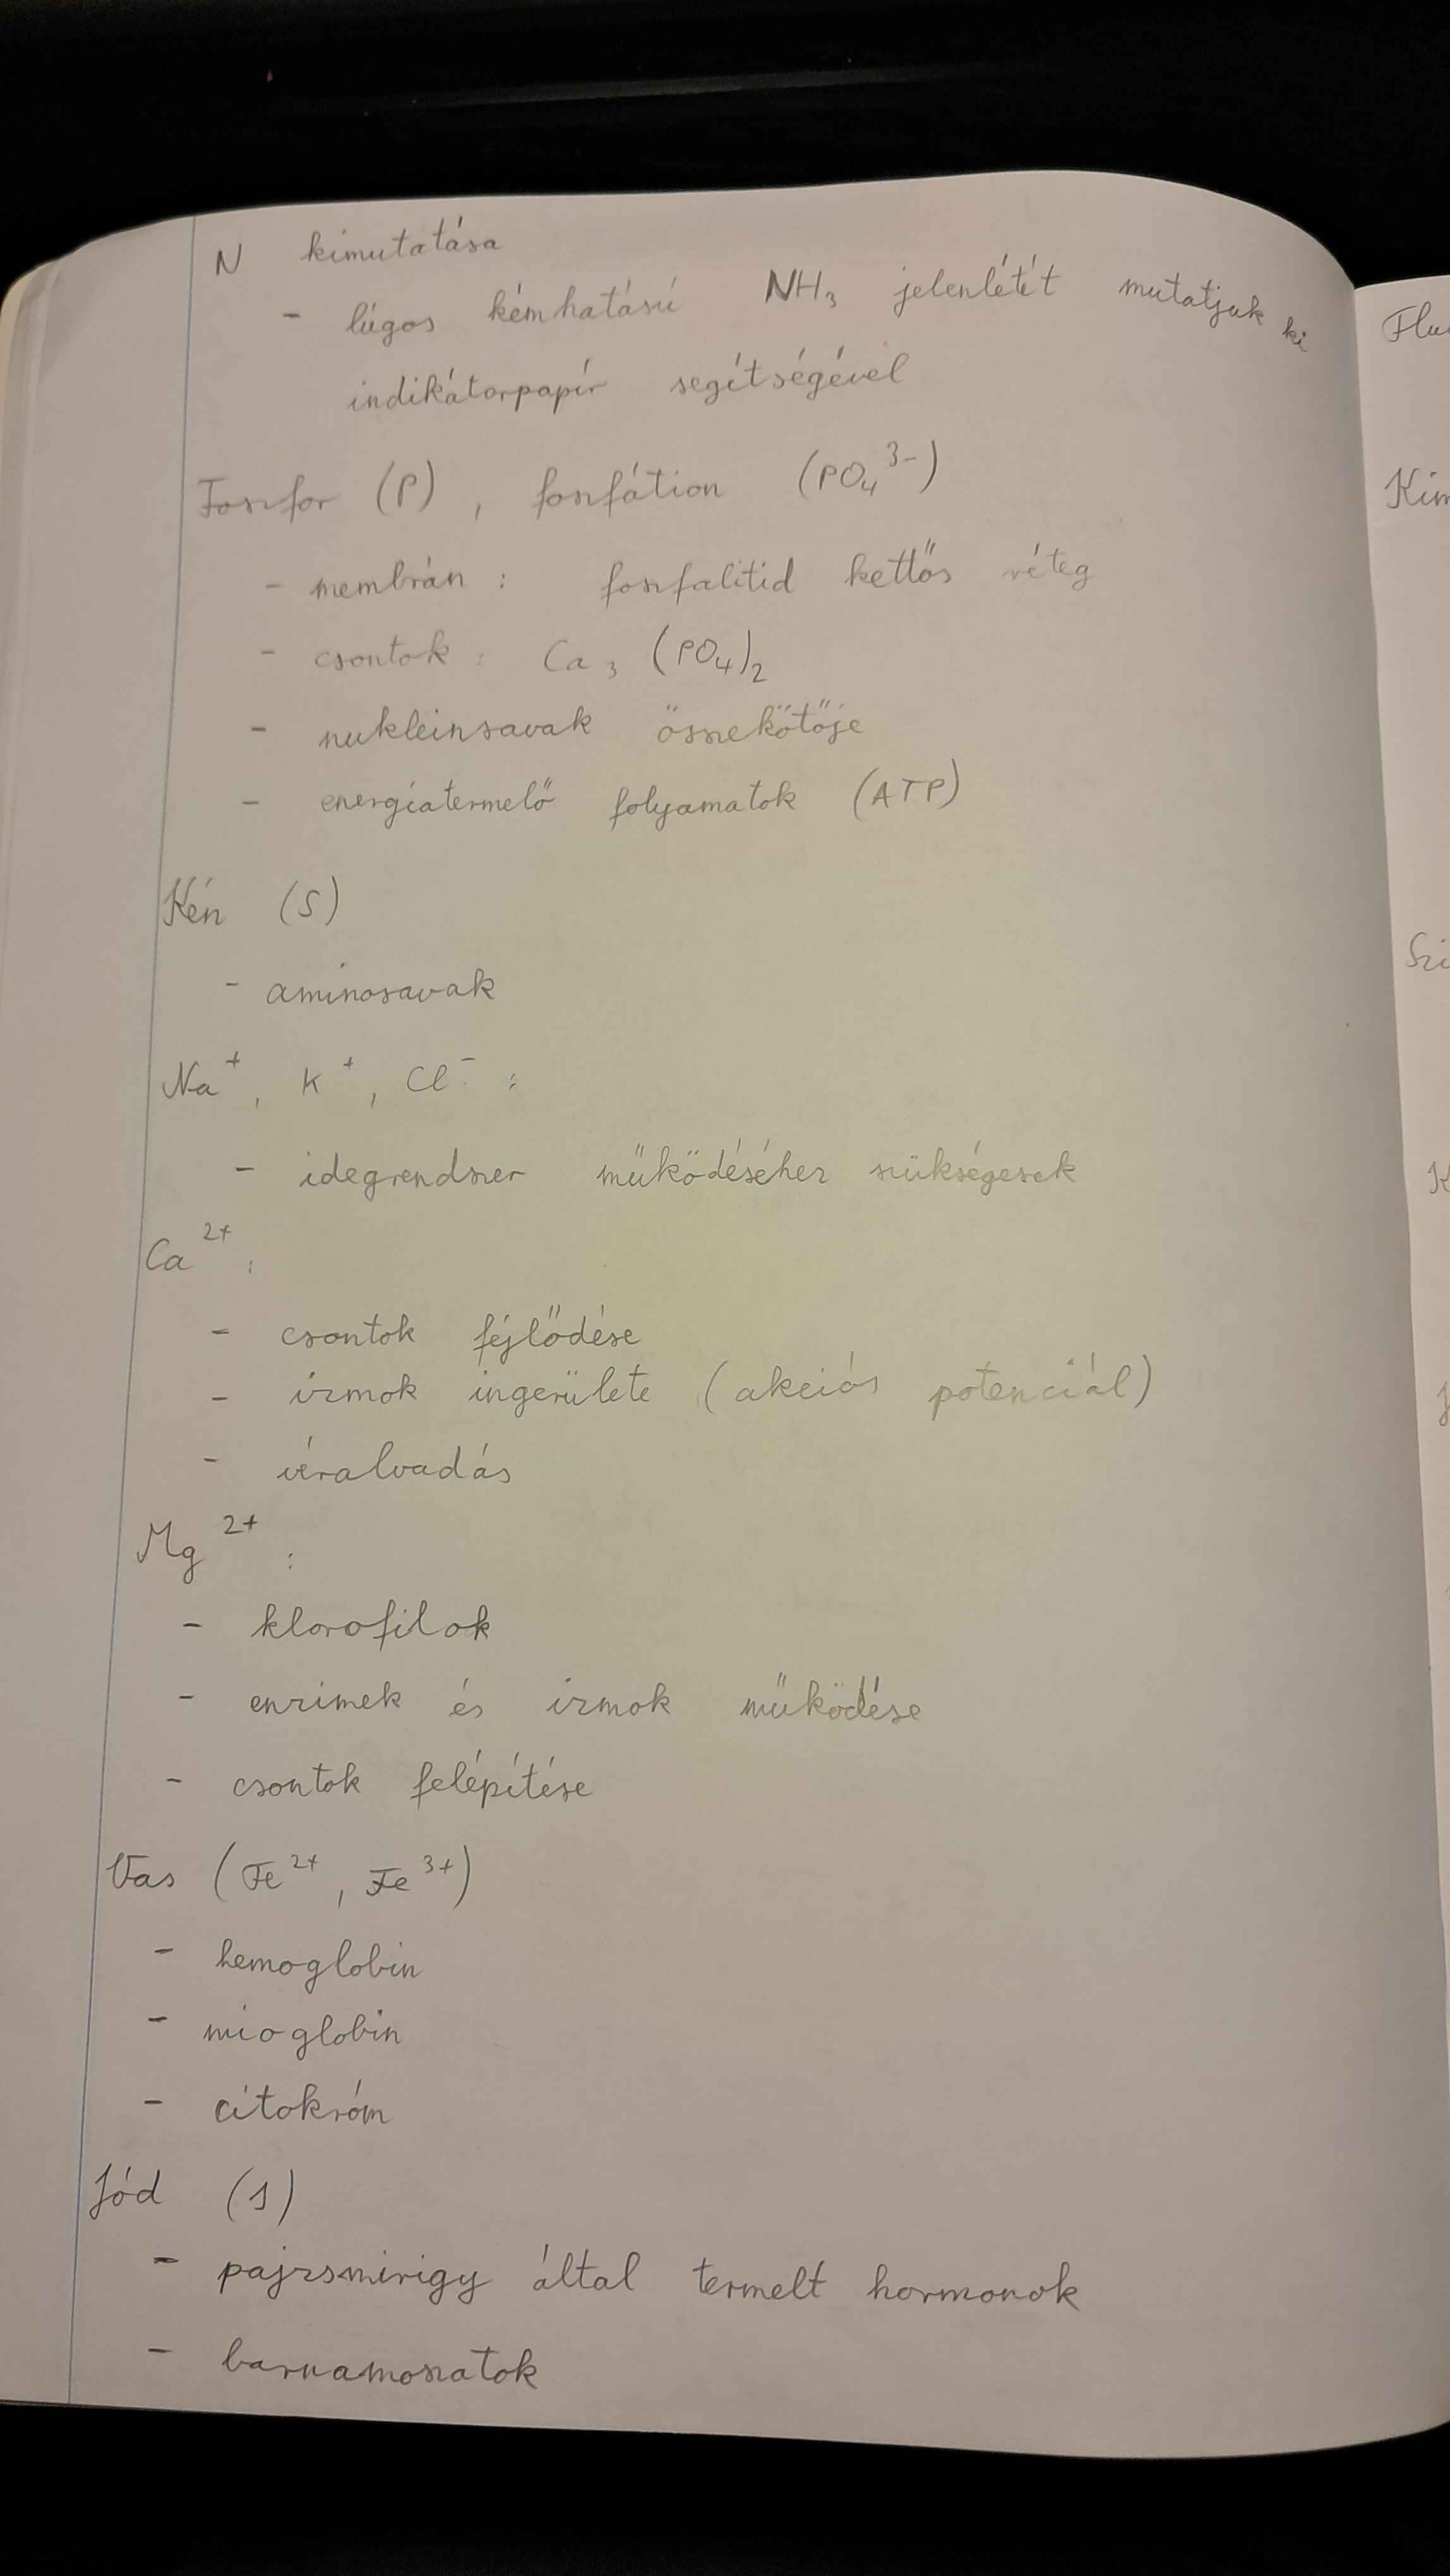 N kimutatása
- lúgos kémhatású NH₃ jelenlétét mutatjuk ki
indikátorpapír segítségével
Foszfor (P), foszfátion (PO₄³⁻)
- membrán: foszfalitid kettős réteg
- csontok: Ca₃(PO₄)₂
- nukleinsavak összekötője
- energiatermelő folyamatok (ATP)
Kén (S)
- aminosavak
Na⁺, K⁺, Cl⁻:
- idegrendszer működéséhez szükségesek
Ca²⁺:
- csontok fejlődése
- izmok ingerülete (akciós potenciál)
- véralvadás
Mg²⁺:
- klorofilok
- enzimek és izmok működése
- csontok felépítése
Vas (Fe²⁺, Fe³⁺)
- hemoglobin
- mioglobin
- citokróm
Jód (I)
- pajzsmirigy által termelt hormonok
- barnamoszatok
Flu
Kim
Szi
K